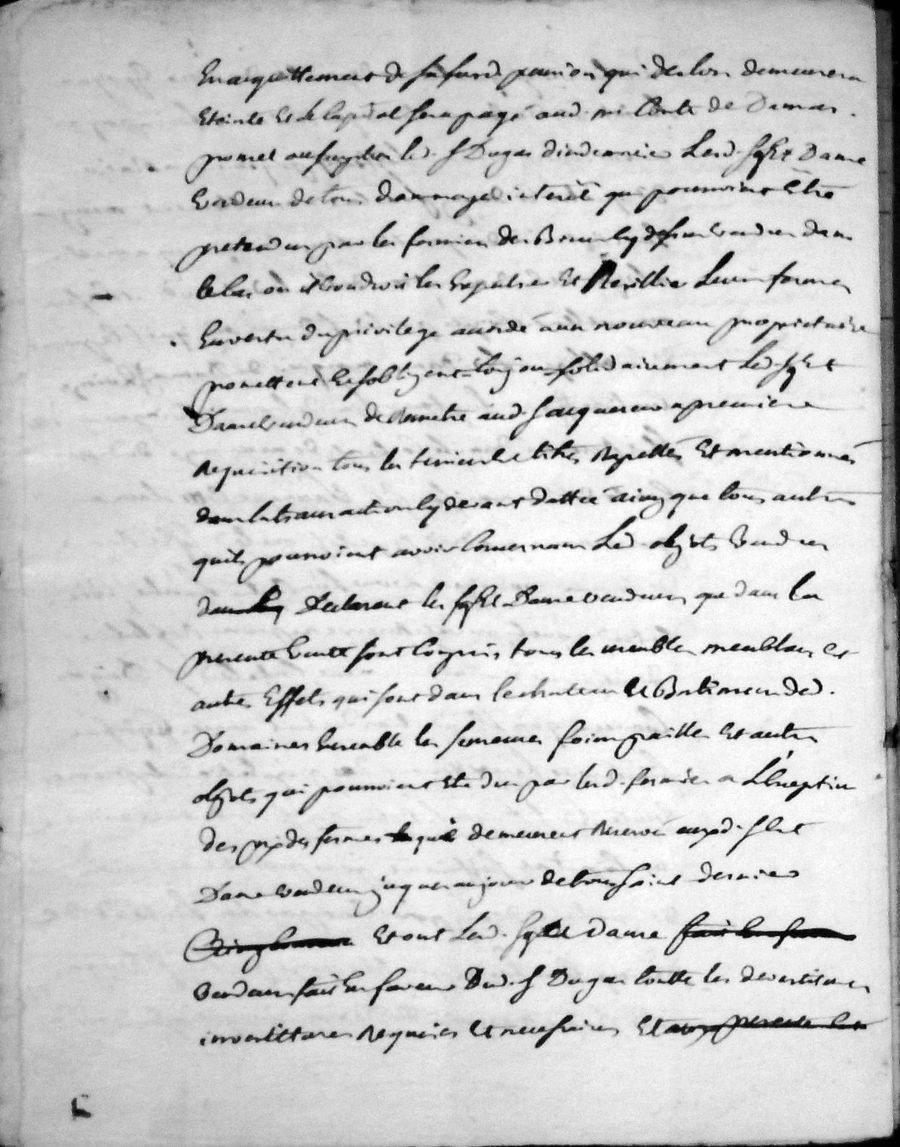 En acquittement de sa susd. pension qui deslors demeurera
Eteinte Et le Capital sera payé aud. Comte de Damas.
promet au surplus led. S Dugas d'indemniser Lesd. Sgr Et Dame
Vendeurs de tous dommages interêts qui pourroient Etre
pretendus par les fermiers des Biens cy dessus vendus dans
le Cas ou il voudroit les Expulser Et Resillier Leurs fermes
En vertu du privilege accordé aux nouveaux proprietaires
promettent Et s'obligent toujours solidairement Led. Sgr Et
Dame vendeurs de Remettre aud. S acquereur a premiere
Requisition tous les terriers Et titres Rapellés Et mentionnés
dans la transaction cy devant dattée ainsy que tous autres
quils pourroient avoir Concernant Led. objets Vendus
Declarent les Sgr Et Dame vendeurs que dans la
presente Vente sont Compris tous les meubles meublans Et
autres Effets qui sont dans le chateau Et Batimens desd.
Domaines Ensemble les semences foins pailles Et autres
objets qui pourroient Etre dus par lesd. fermiers a L'Exeption
des prix des fermes qui demeurent Reservé auxd. Sgr Et
Dame vendeurs jusques au jour de toussaint dernier
Et ont Lesd. Sgr Et Dame
Vendeurs fait En faveur Dud. S Dugas toutte les devestitures
investitures Requises Et necessaires Et